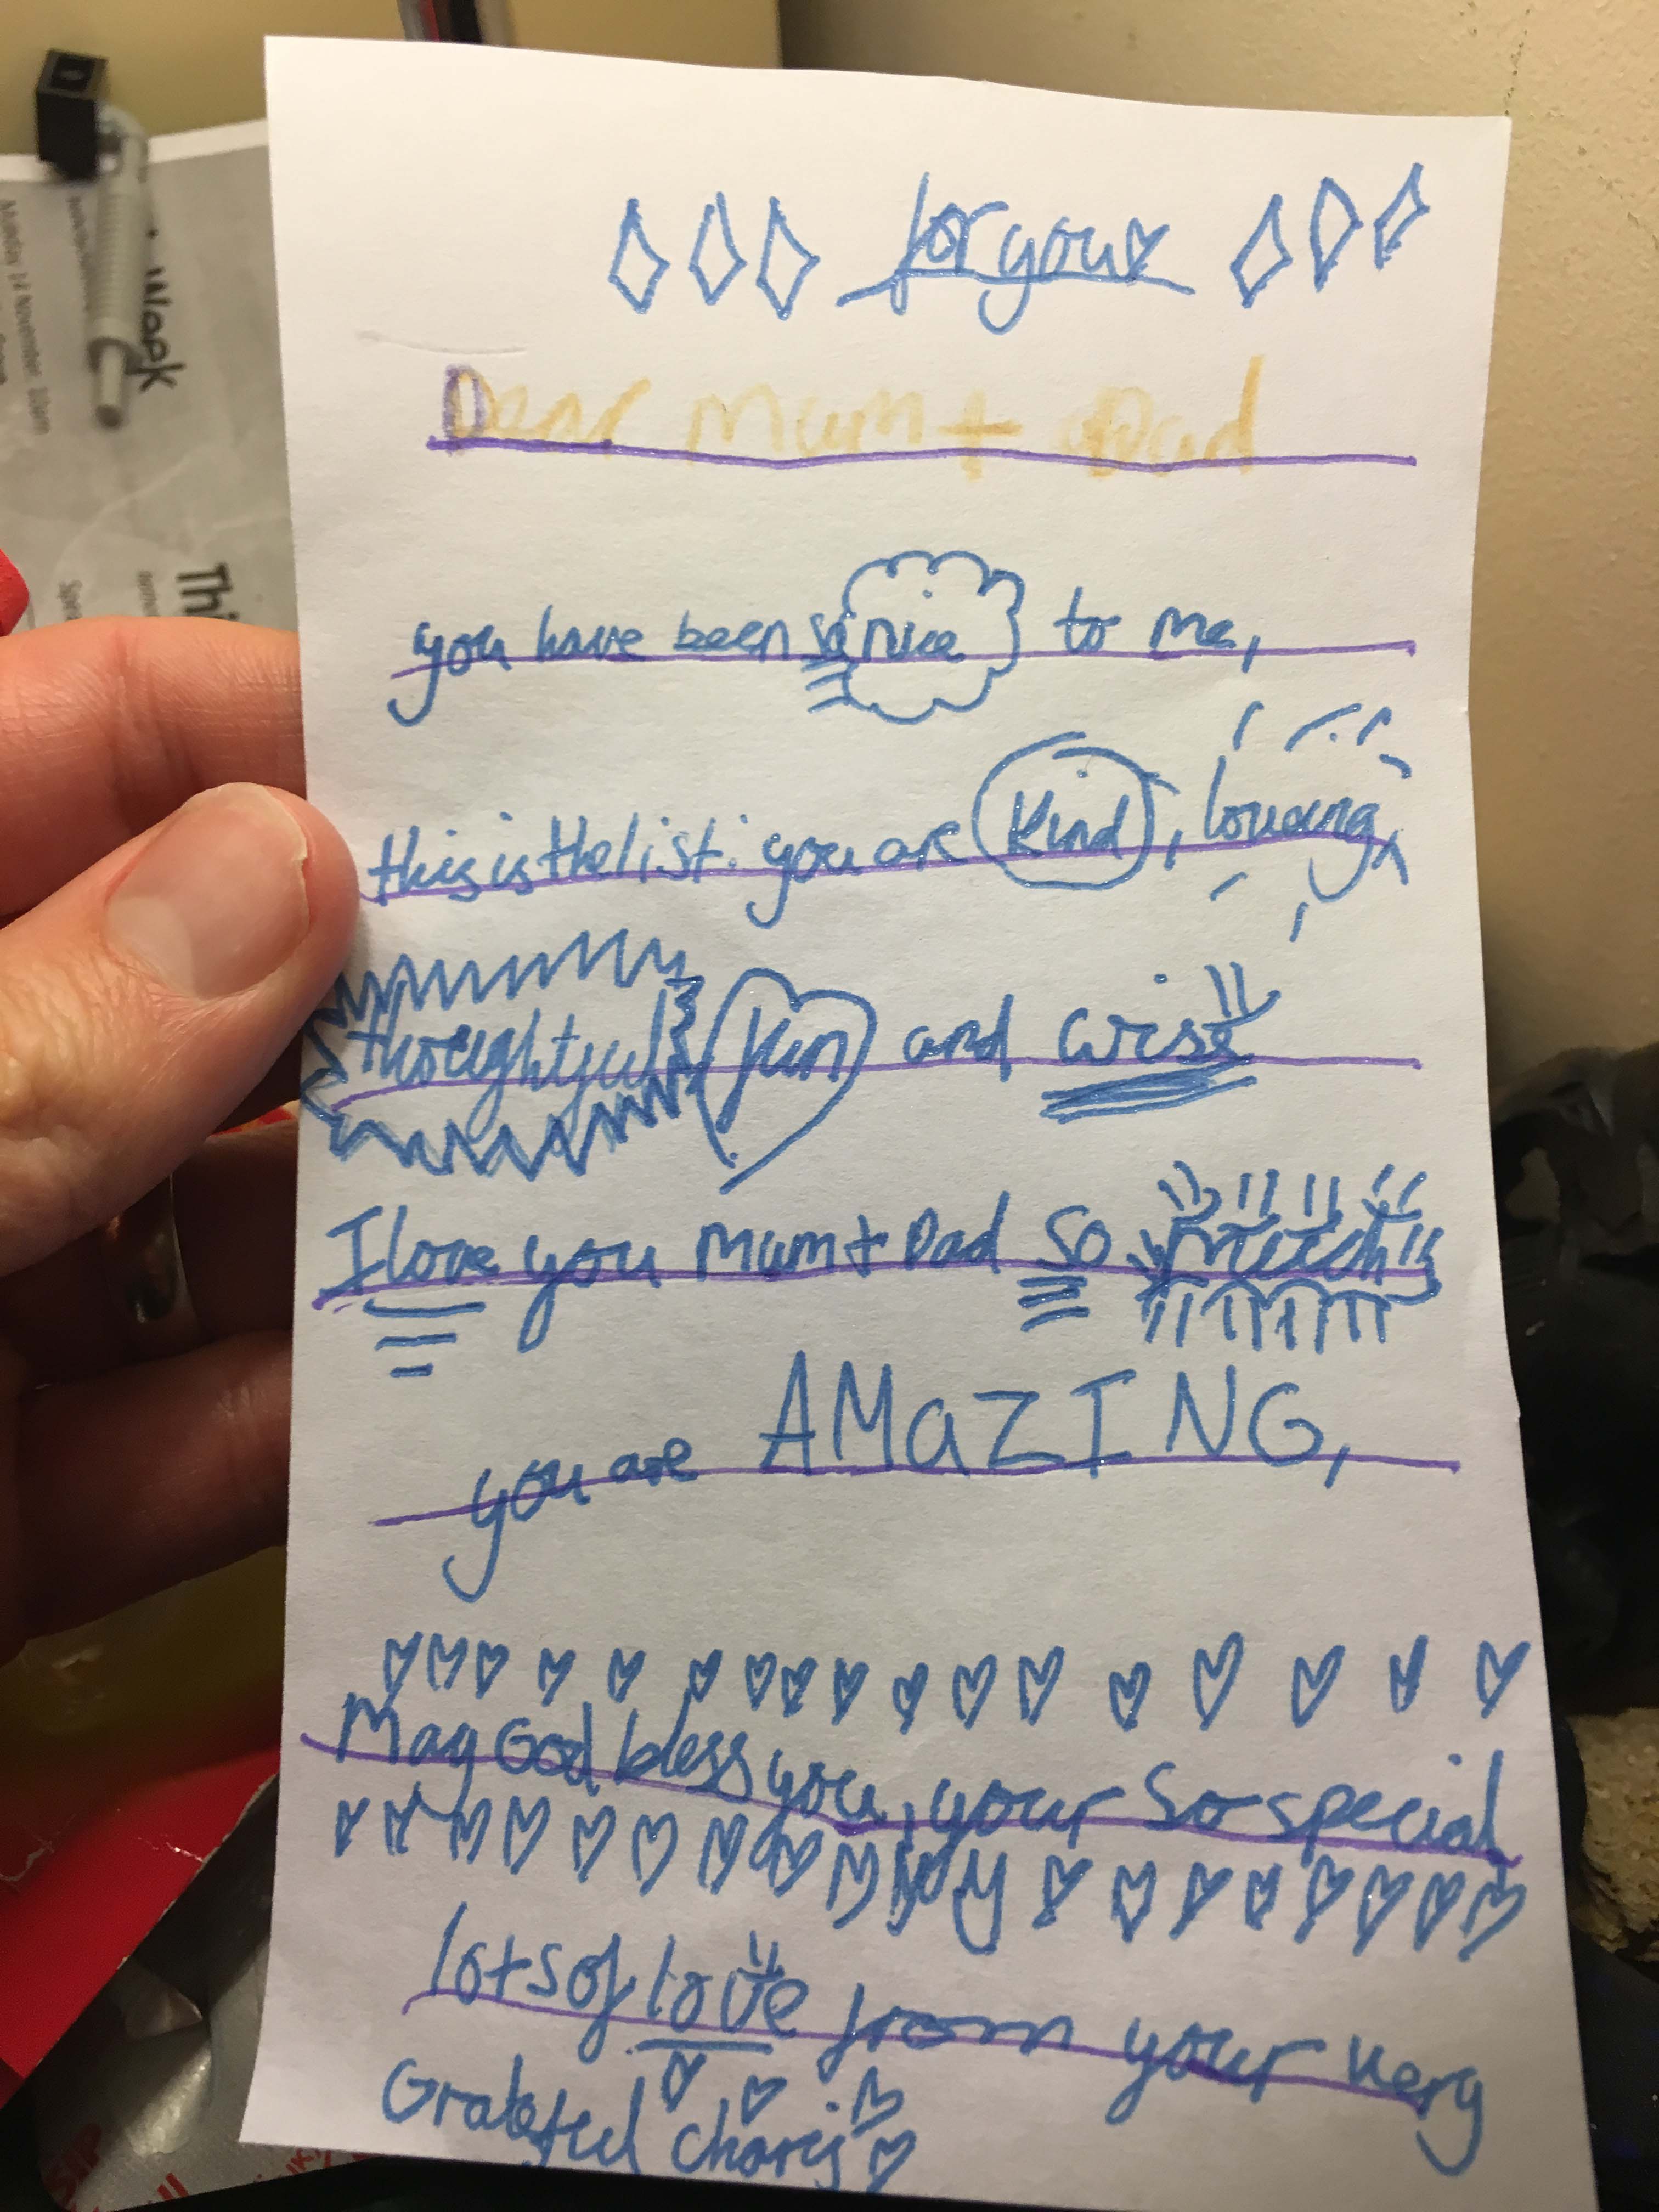 for you
Dear Mum + Dad
you have been so nice to me,
this is the list: you are Kind, loveing,
thoughtful fun and wise
I love you Mum + Dad so much
you are AMaZING,
May God bless you, your so special
lots of love from your very
Grateful
Week
Monday 14 November, 10am
Thi